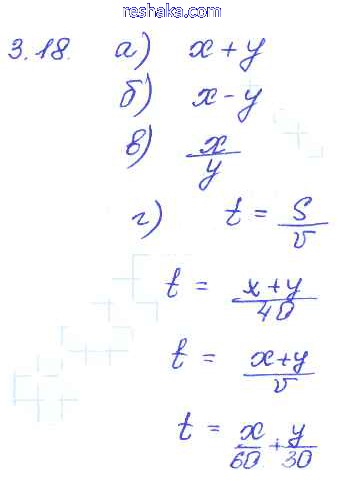 reshaka.com
3.18. а) x + y
б) x - y
в) x/y
г) t = S/v
t = x + y/40
t = x+y/v
t = x/60 + y/30